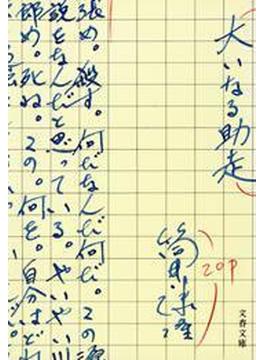 大いなる助走
20P
筒井康隆
文春文庫
張め。殺す。何だなんだ何だ。この
説をなんだと思っている。やいやい川
郎め。死ね。この。何を。自分はどれ